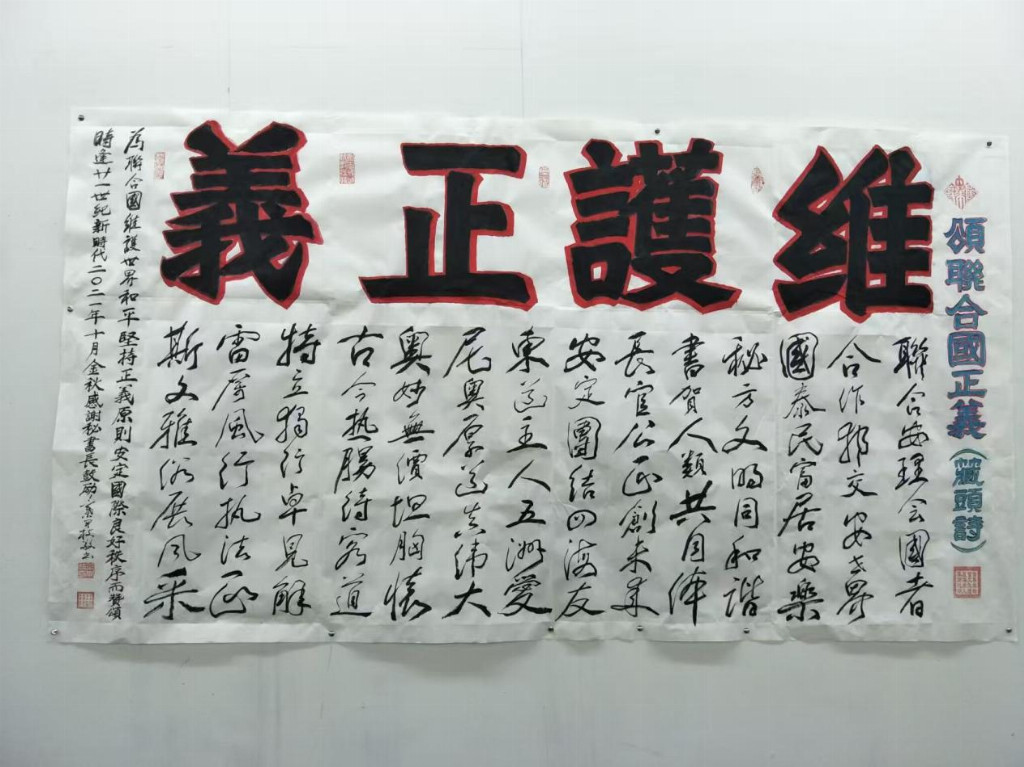 维護正義
頌聯合國正義(藏頭詩)
聯合安理会國者
合作邦交安世界
國泰民富居安樂
秘方文明同和諧
書賀人類共同体
長官公正創未来
安定團结四海友
東道主人五洲愛
尼奥厚道真伟大
奥妙無價坦胸懷
古今热腸待客道
特立獨行卓見解
雷厲風行执法正
斯文雅俗展风采
為聯合國維護世界和平堅持正義原則安定國際良好秩序而贊頌
時逢廿一世纪新時代二〇二一年十月金秋感謝秘書長鼓励